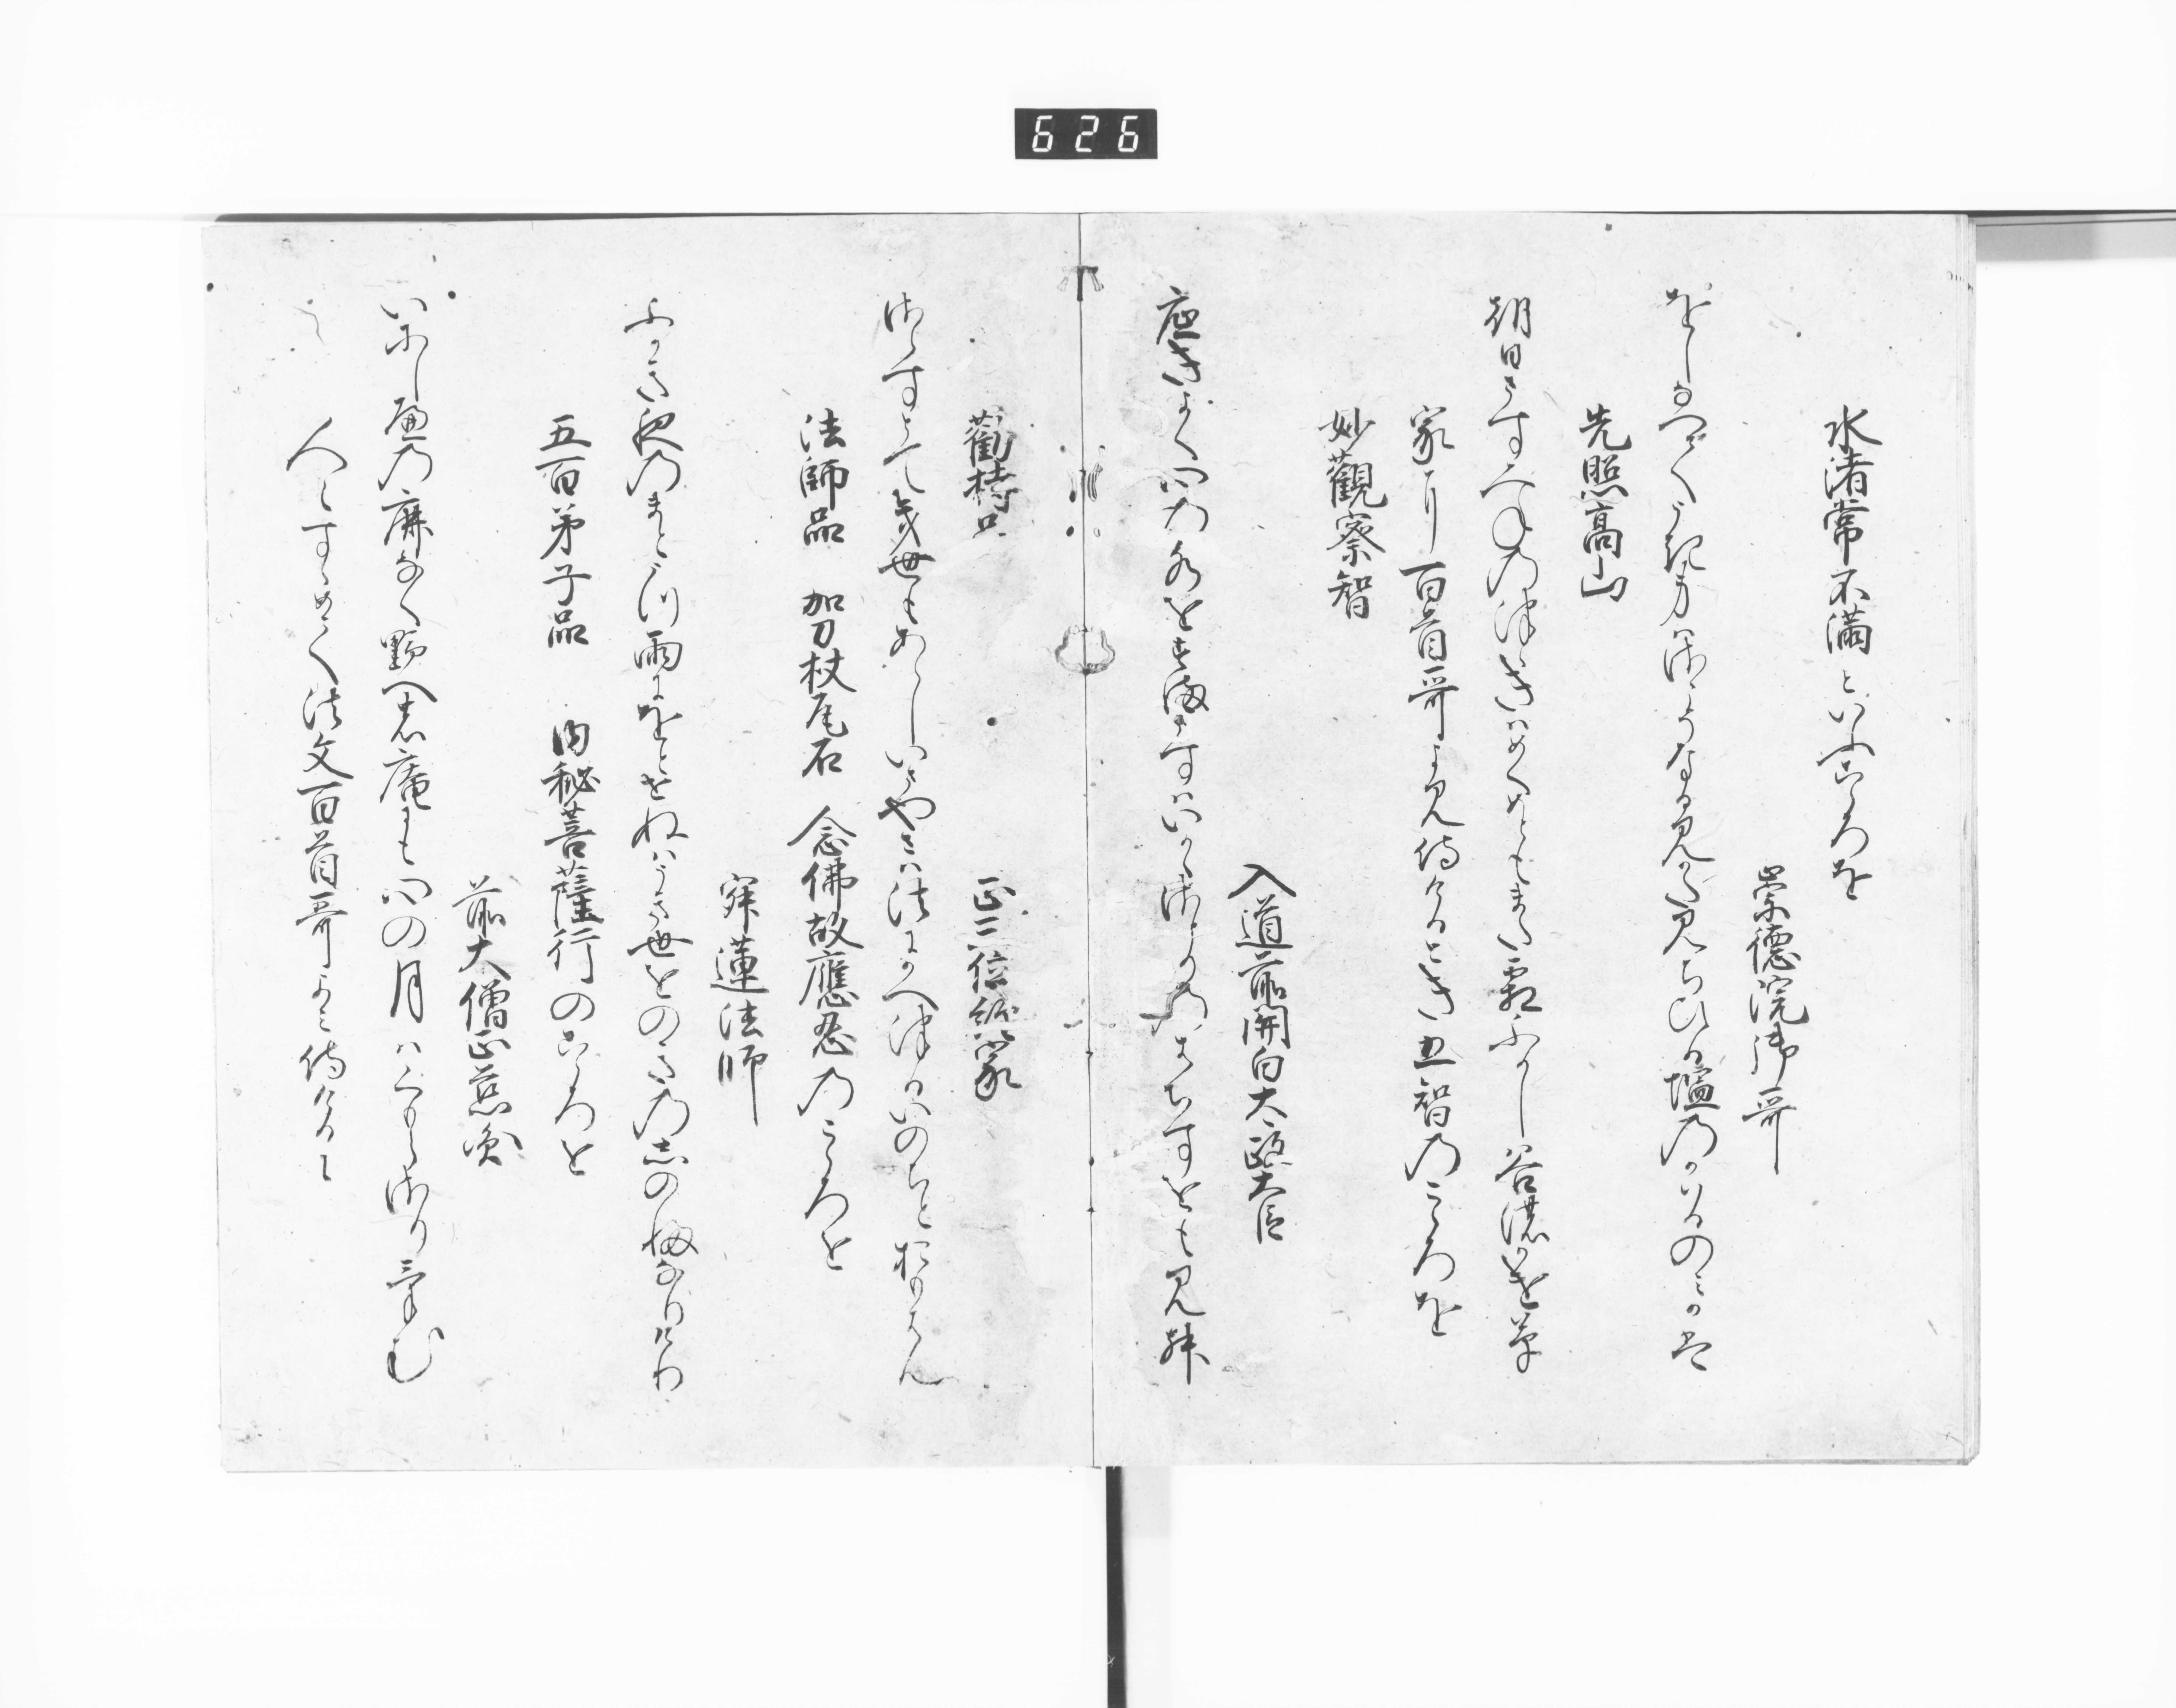 626
水渚常不満といふこゝろを
崇徳院御哥
をしなへてうき身はさこそなるみかたみちひる塩のかはるのみかは
先照高山
朝日さすみねのつゝきはめくめともまた霜ふかし谷のかけ草
家に百首哥よみ侍けるときに五智のこゝろを
妙觀察智
入道前関白太政大臣
底きよく心の水をすまさすはいかゝさとりのはちすをも見ん
勸持品
正三位経家
さらすとていく世もあらしいさやさは法にかへつるいのちとおもはん
法師品 加刀杖瓦石 念佛故應忍のこゝろを
寂蓮法師
ふかき夜のまとうつ雨にをとせぬはうき世をのきのしのふなりけり
五百弟子品 内秘菩薩行のこゝろを
前大僧正慈円
いにしへの鹿なく野への庵にも心の月はくもらさりけむ
人々すゝめて法文百首哥よみ侍けるに